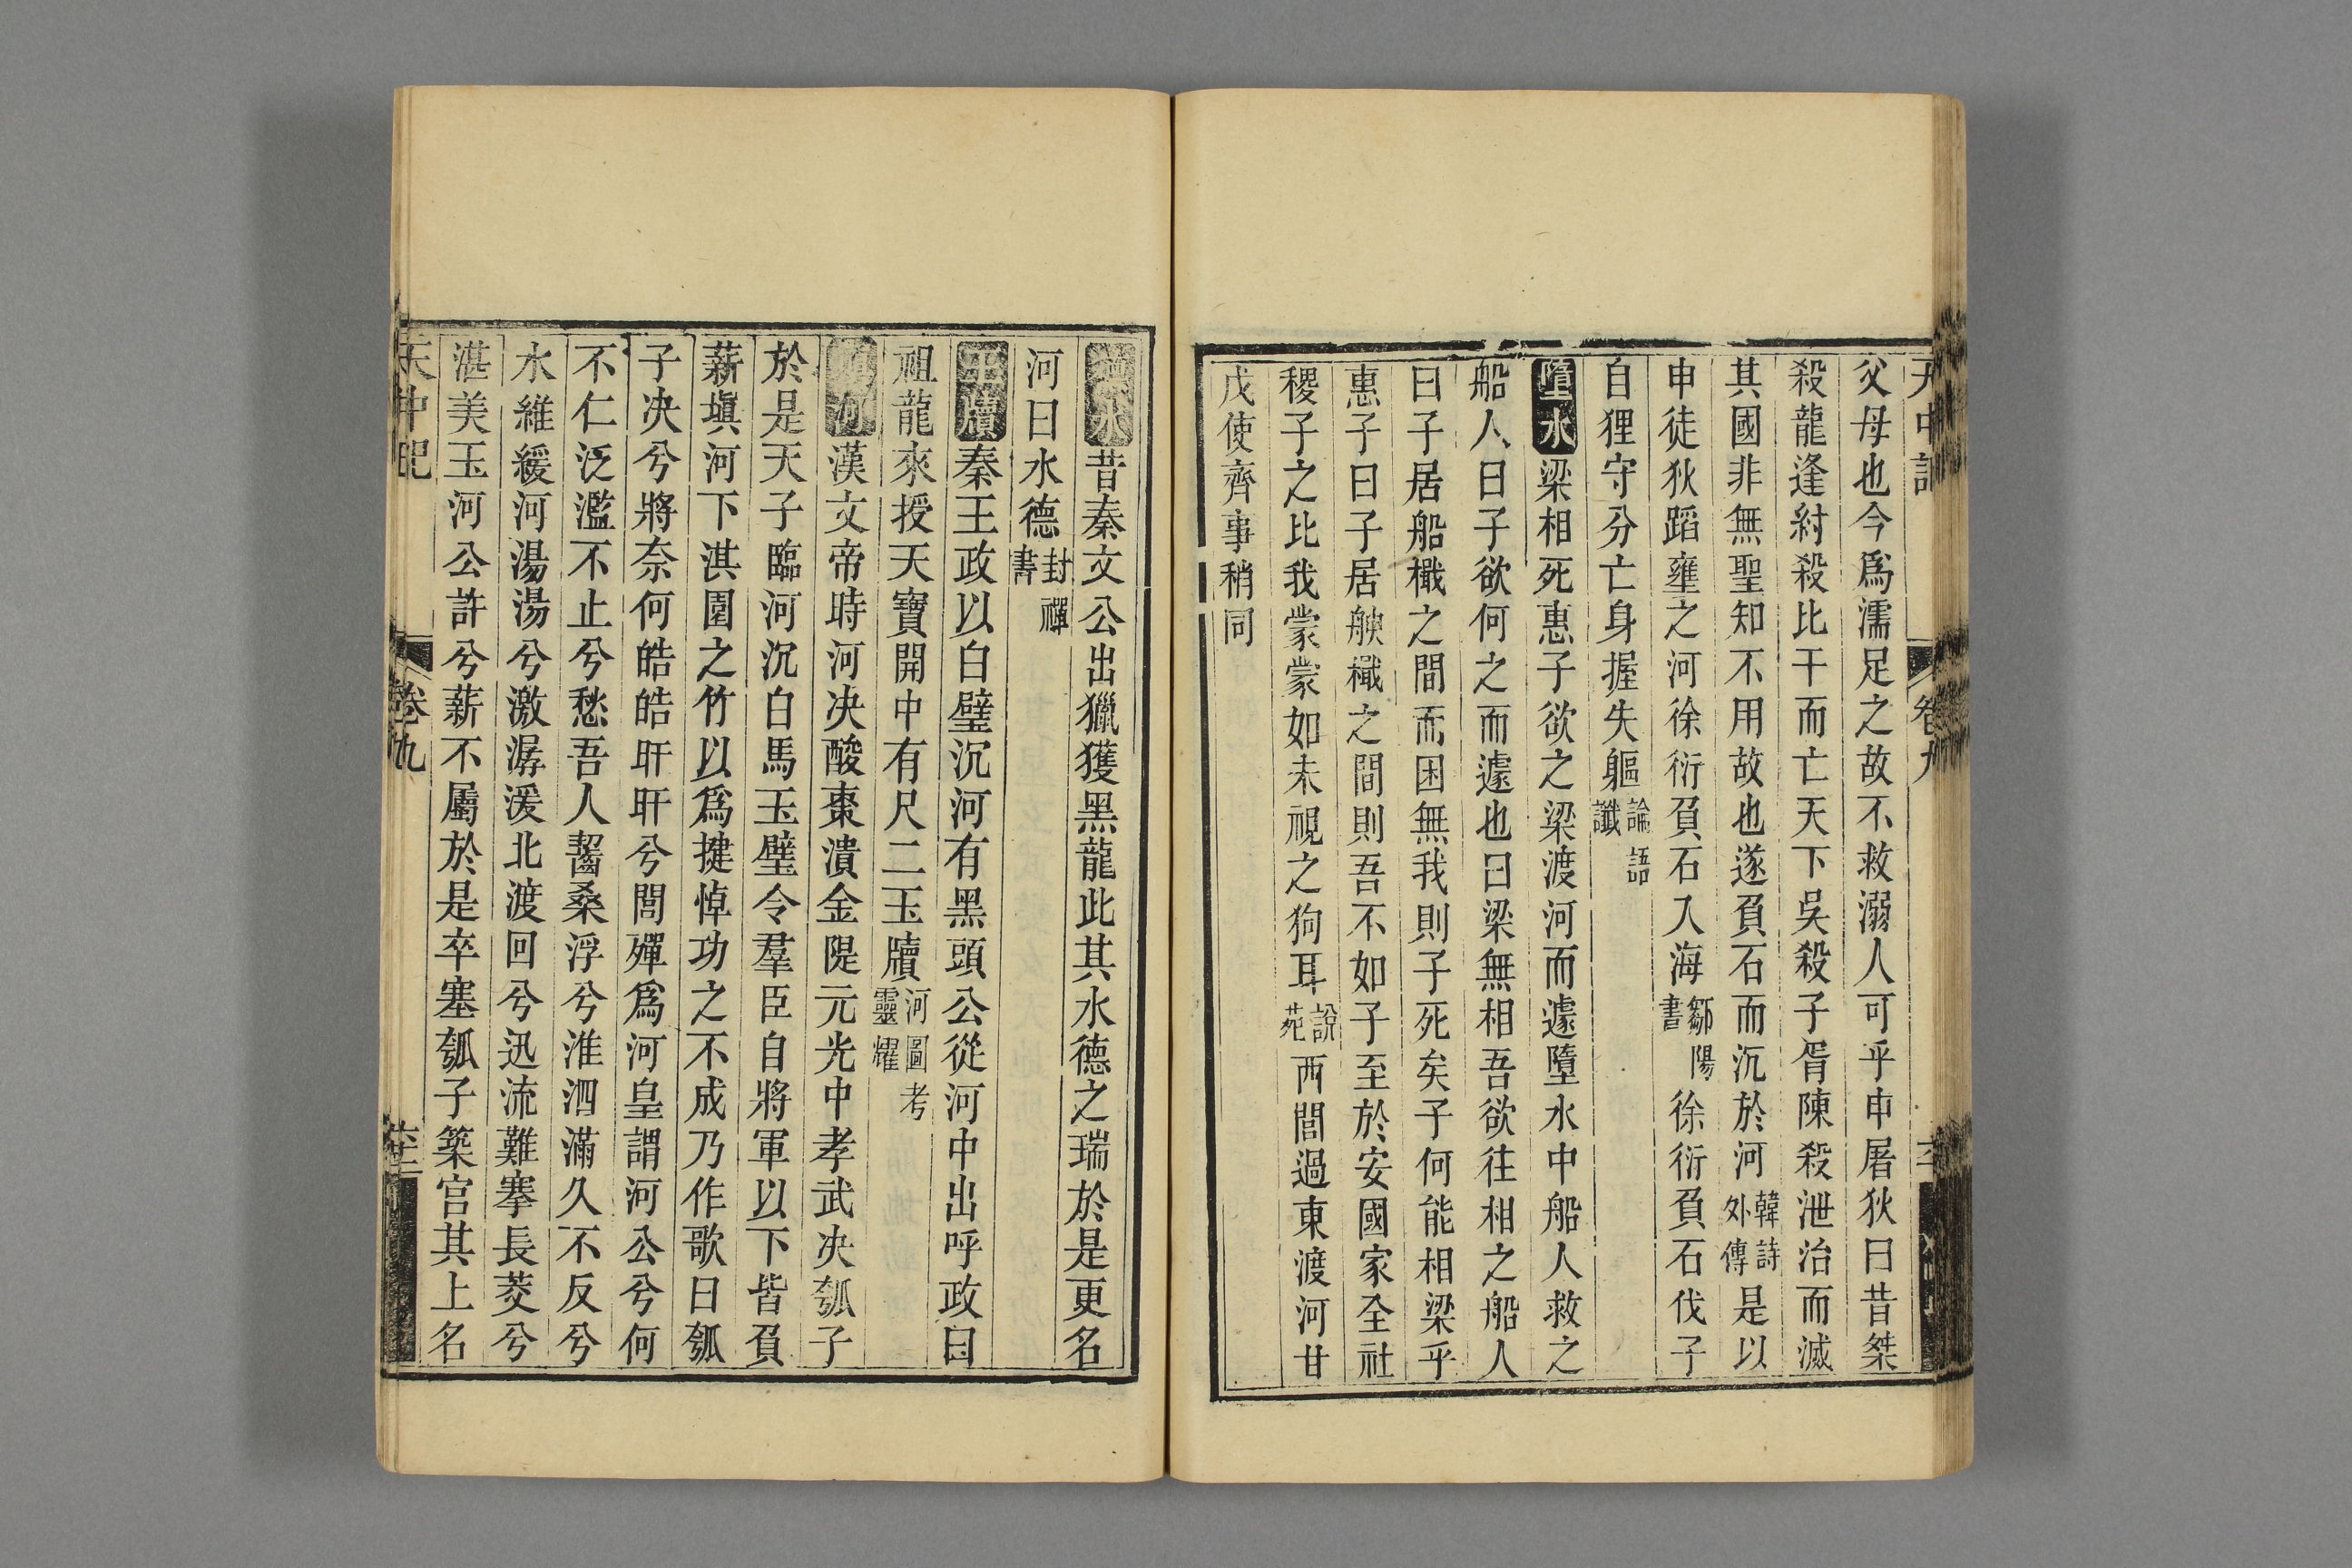 父母也今爲濡足之故不救溺人可乎申屠狄曰昔桀
殺龍逢紂殺比干而亡天下吳殺子胥陳殺泄冶而滅
其國非無聖知不用故也遂負石而沉於河韓詩外傳是以
申徒狄蹈壅之河徐衍負石入海鄒陽書徐衍負石伐子
自狸守分亡身握失軀論語讖
墮水梁相死惠子欲之梁渡河而遽墮水中船人救之
船人曰子欲何之而遽也曰梁無相吾欲往相之船人
曰子居船檝之間而困無我則子死矣子何能相梁乎
惠子曰子居艘檝之間則吾不如子至於安國家全社
稷子之比我蒙蒙如未視之狗耳說苑西閭過東渡河甘
戊使齊事稍同
德水昔秦文公出獵獲黑龍此其水德之瑞於是更名
河曰水德封禪書
玉牘秦王政以白璧沉河有黑頭公從河中出呼政曰
祖龍來授天寶開中有尺二玉牘河圖考靈耀
河漢文帝時河决酸棗潰金隄元光中孝武决瓠子
於是天子臨河沉白馬玉璧令羣臣自將軍以下皆負
薪塡河下淇園之竹以爲揵悼功之不成乃作歌曰瓠
子决兮將奈何皓皓旰旰兮閭殫爲河皇謂河公兮何
不仁泛濫不止兮愁吾人齧桑浮兮淮泗滿久不反兮
水維緩河湯湯兮激潺湲北渡回兮迅流難搴長茭兮
湛美玉河公許兮薪不屬於是卒塞瓠子築宫其上名
天中記 卷九